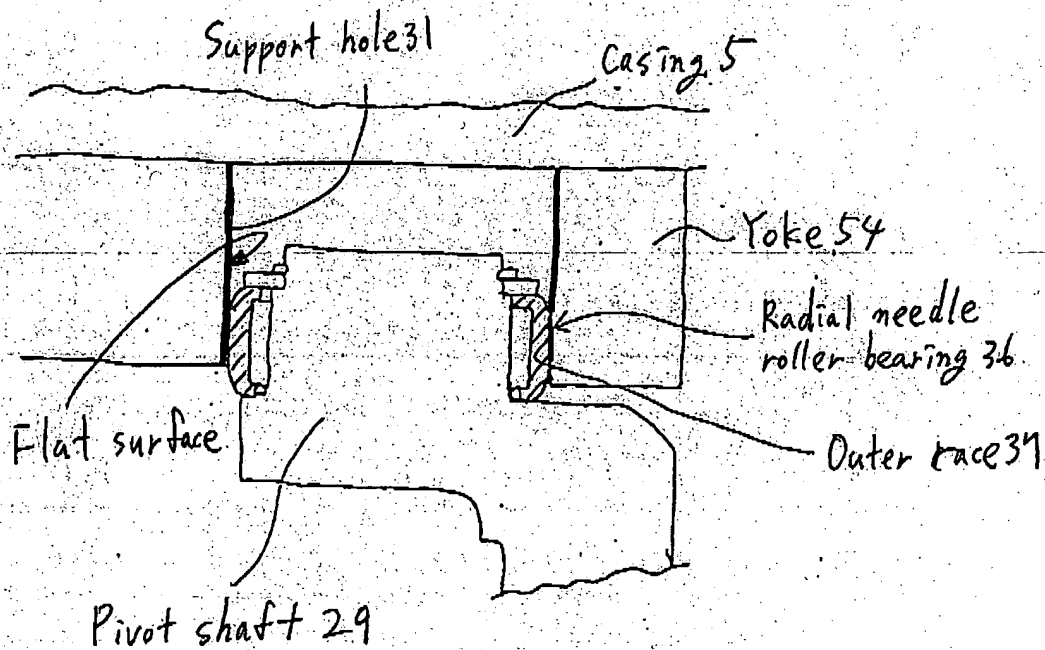 Support hole 31
Casing 5
Yoke 54
Radial needle
roller bearing 36
Flat surface
Outer race 37
Pivot shaft 29